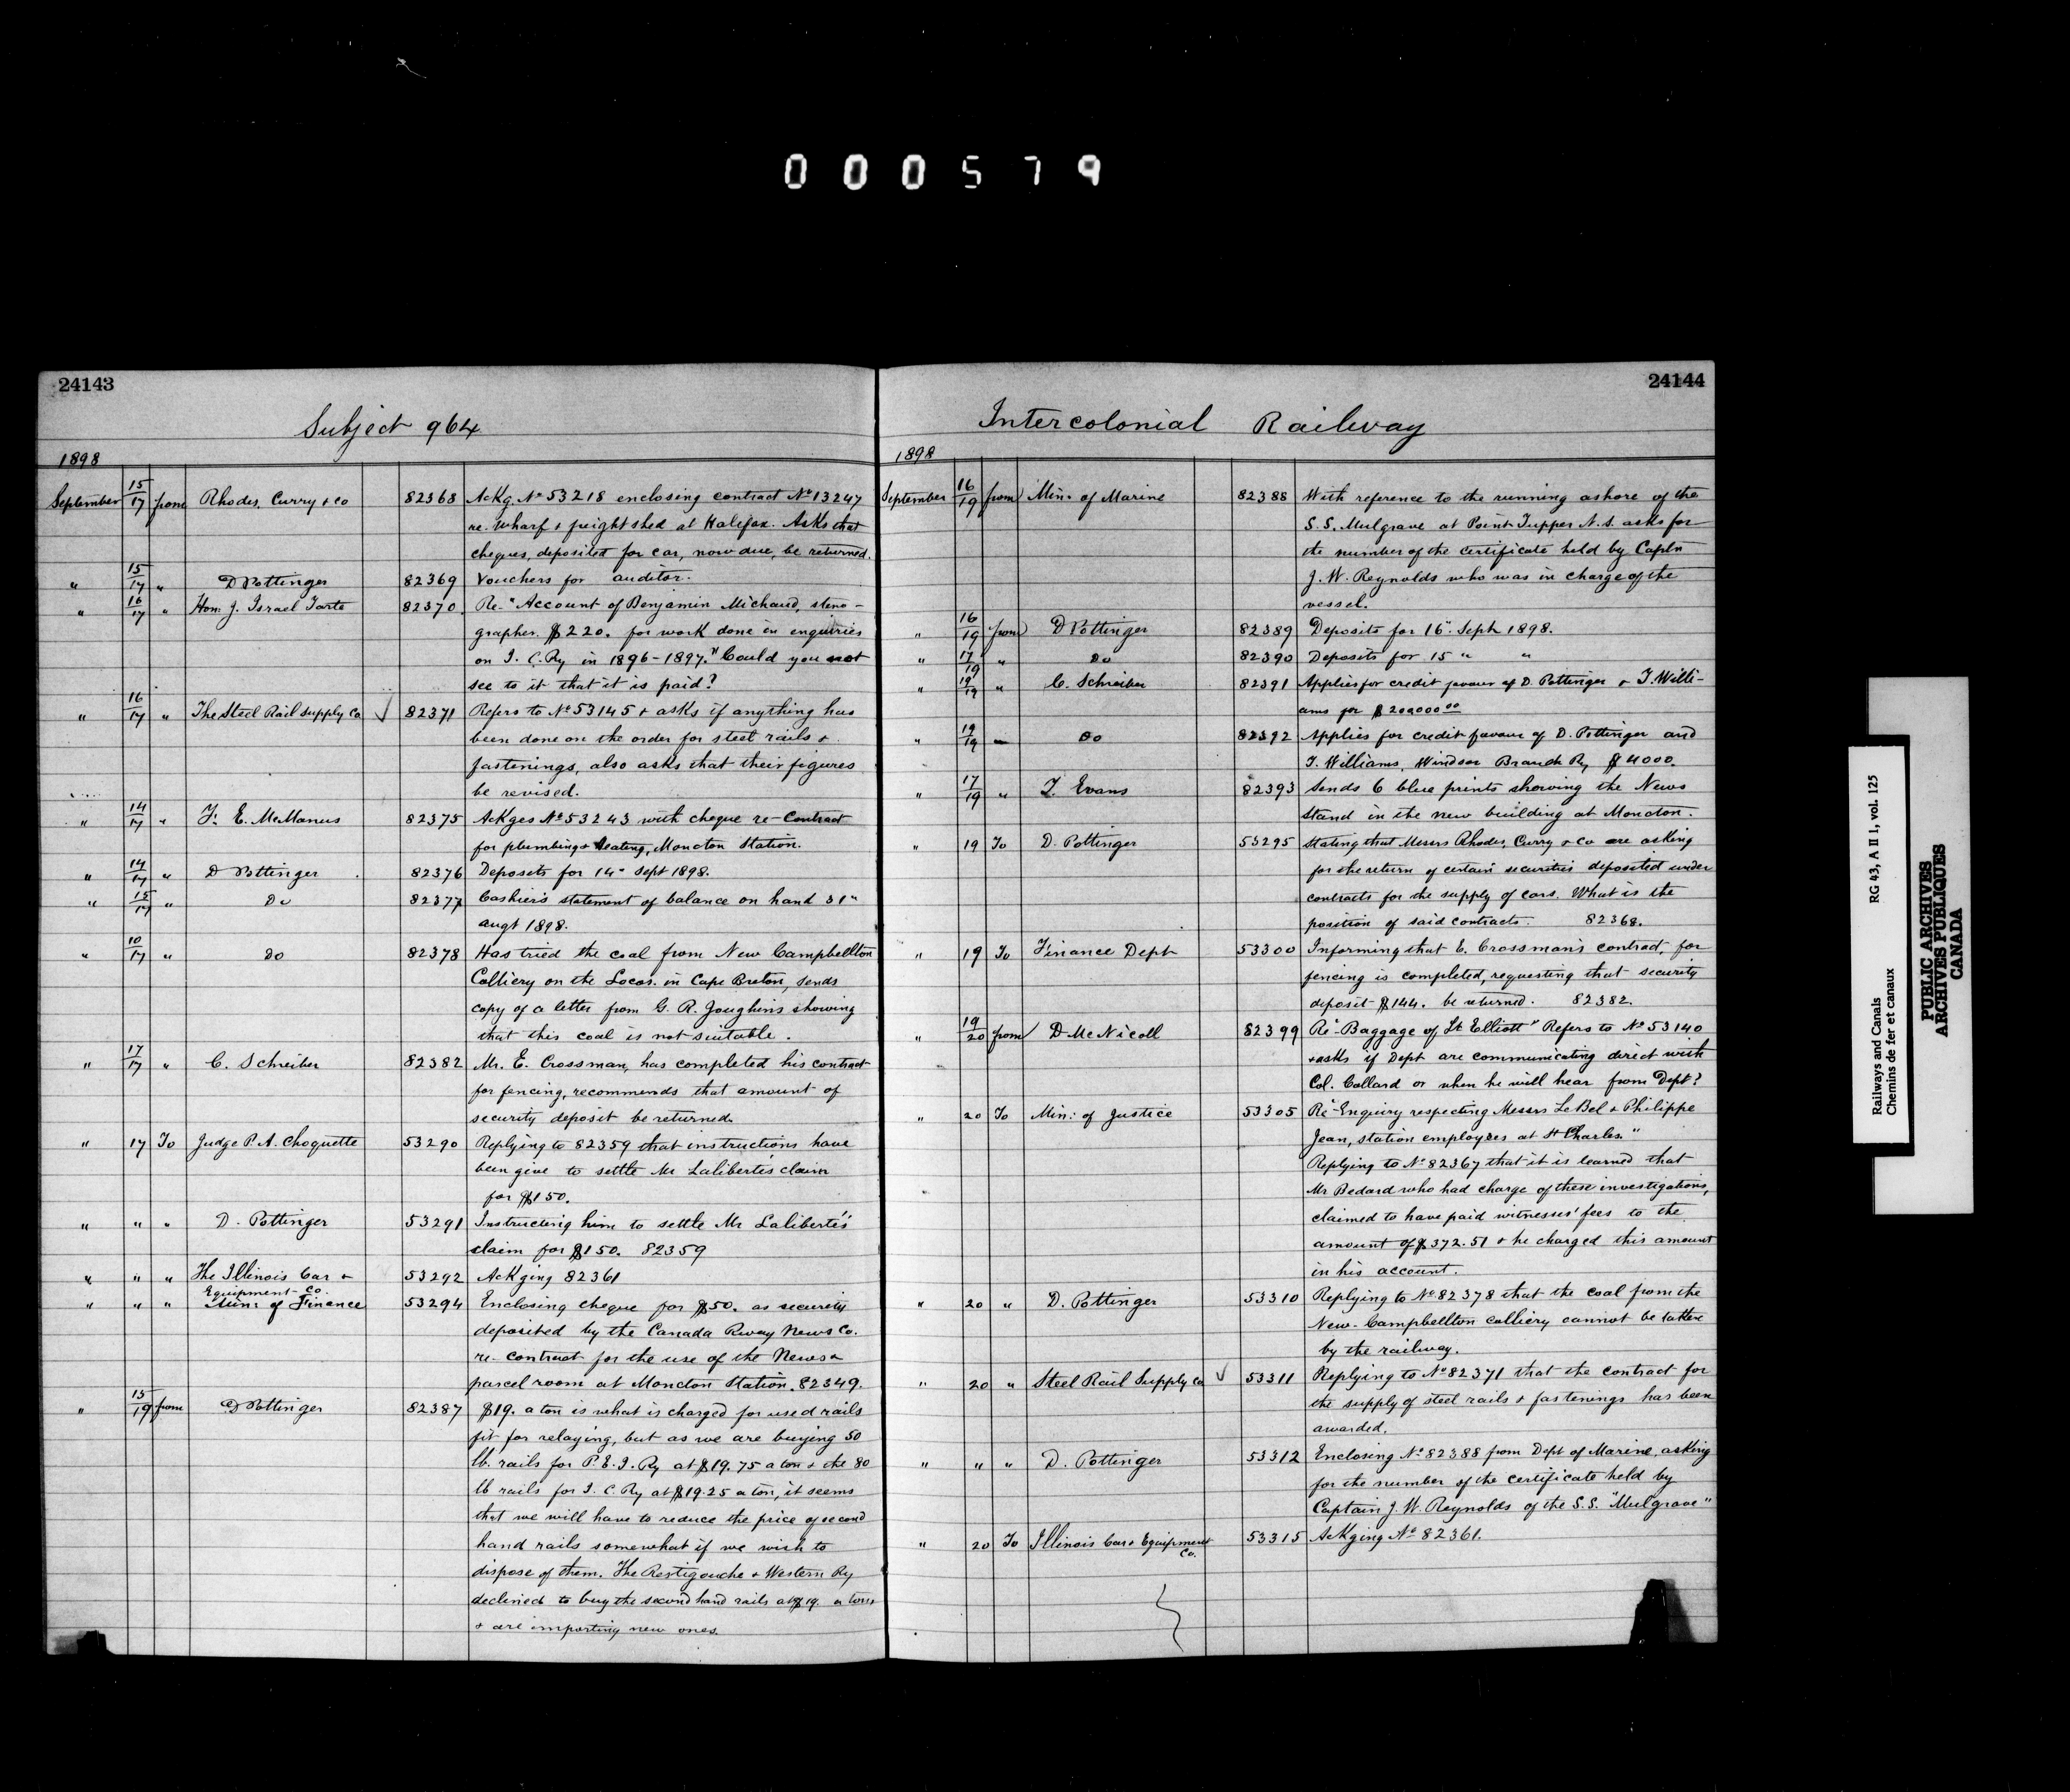 000579
24143
Subject 964
1898
September 15/17 from Rhodes, Curry & Co 82368 AcKg. No 53218 enclosing contract No 13247
re. wharf & freight shed at Halifax. Asks that
cheques, deposited for car, now due, be returned.
" 15/17 " D Pottinger 82369 Vouchers for auditor.
" 16/17 " Hon: J. Israel Tarte 82370 Re-"Account of Benjamin Michaud, steno-
grapher. $220. for work done in enquiries
on I. C. Ry in 1896-1897." Could you not
see to it that it is paid?
" 16/17 " The Steel Rail Supply Co √ 82371 Refers to No 53145 & asks if anything has
been done on the order for steel rails &
fastenings, also asks that their figures
be revised.
" 14/17 " F. E. McManus 82375 AcKges No 53243 with cheque re-Contract
for plumbing & heating, Moncton Station.
" 14/17 " D Pottinger 82376 Deposits for 14" Sept 1898.
" 15/17 " Do 82377 Cashier's statement of balance on hand 31"
augt 1898.
" 10/17 " Do 82378 Has tried the coal from New Campbellton
Colliery on the Locos. in Cape Breton, sends
copy of a letter from G. R. Joughins showing
that this coal is not suitable.
" 17/17 " C. Schreiber 82382 Mr. E. Crossman, has completed his contract
for fencing, recommends that amount of
security deposit be returned.
" 17 To Judge P. A. Choquette 53290 Replying to 82359 that instructions have
been give to settle Mr Laliberté's claim
for $150.
" " " D. Pottinger 53291 Instructing him to settle Mr Laliberté's
claim for $150. 82359
" " " The Illinois Car & 53292 AcKging 82361
Equipment Co.
" " " Min: of Finance 53294 Enclosing cheque for $50. as security
deposited by the Canada Rway News Co.
re-contract for the use of the News &
parcel room at Moncton Station. 82349.
" 15/19 from D Pottinger 82387 $19. a ton is what is charged for used rails
fit for relaying, but as we are buying 50
lb. rails for P. E. I. Ry at $19.75 a ton & the 80
lb rails for I. C. Ry at $19.25 a ton, it seems
that we will have to reduce the price of second
hand rails somewhat if we wish to
dispose of them. The Restigouche & Western Ry
declined to buy the second hand rails at $19. a ton
& are importing new ones.
24144
Intercolonial Railway
1898
September 16/19 from Min: of Marine 82388 With reference to the running ashore of the
S.S. Mulgrave at Point Tupper N.S. asks for
the number of the certificate held by Captn
J. W. Reynolds who was in charge of the
vessel.
" 16/19 from D Pottinger 82389 Deposits for 16" Sept 1898.
" 17/19 " Do 82390 Deposits for 15 " "
" 19/19 " C. Schreiber 82391 Applies for credit favour of D. Pottinger & T. Willi-
ams for $200000 00
" 19/19 " Do 82392 Applies for credit favour of D. Pottinger and
T. Williams, Windsor Branch Ry $4000.
" 17/19 " T. Evans 82393 Sends 6 blue prints showing the News
Stand in the new building at Moncton.
" 19 To D. Pottinger 53295 Stating that Messrs Rhodes, Curry & Co are asking
for the return of certain securities deposited under
contracts for the supply of cars. What is the
position of said contracts. 82368.
" 19 To Finance Dept 53300 Informing that E. Crossman's contract, for
fencing is completed, requesting that security
deposit $144. be returned. 82382.
" 19/20 from D McNicoll 82399 Re-"Baggage of Lt Elliott" Refers to No 53140
& asks if Dept are communicating direct with
Col. Collard or when he will hear from Dept?
" 20 To Min: of Justice 53305 Re-"Enquiry respecting Messrs LeBel & Philippe
Jean, station employees at St Charles."
Replying to No 82367 that it is learned that
Mr Bedard who had charge of these investigations,
claimed to have paid witnesses' fees to the
amount of $372.51 & he charged this amount
in his account.
" 20 " D. Pottinger 53310 Replying to No 82378 that the coal from the
New-Campbellton colliery cannot be taken
by the railway.
" 20 " Steel Rail Supply Co √ 53311 Replying to No 82371 that the contract for
the supply of steel rails & fastenings has been
awarded.
" " " D. Pottinger 53312 Enclosing No 82388 from Dept of Marine, asking
for the number of the certificate held by
Captain J. W. Reynolds of the S.S. "Mulgrave"
" 20 To Illinois Car & Equipment 53315 AcKging No 82361.
Co.
Railways and Canals RG 43, A II 1, vol. 125
Chemins de fer et canaux
PUBLIC ARCHIVES
ARCHIVES PUBLIQUES
CANADA